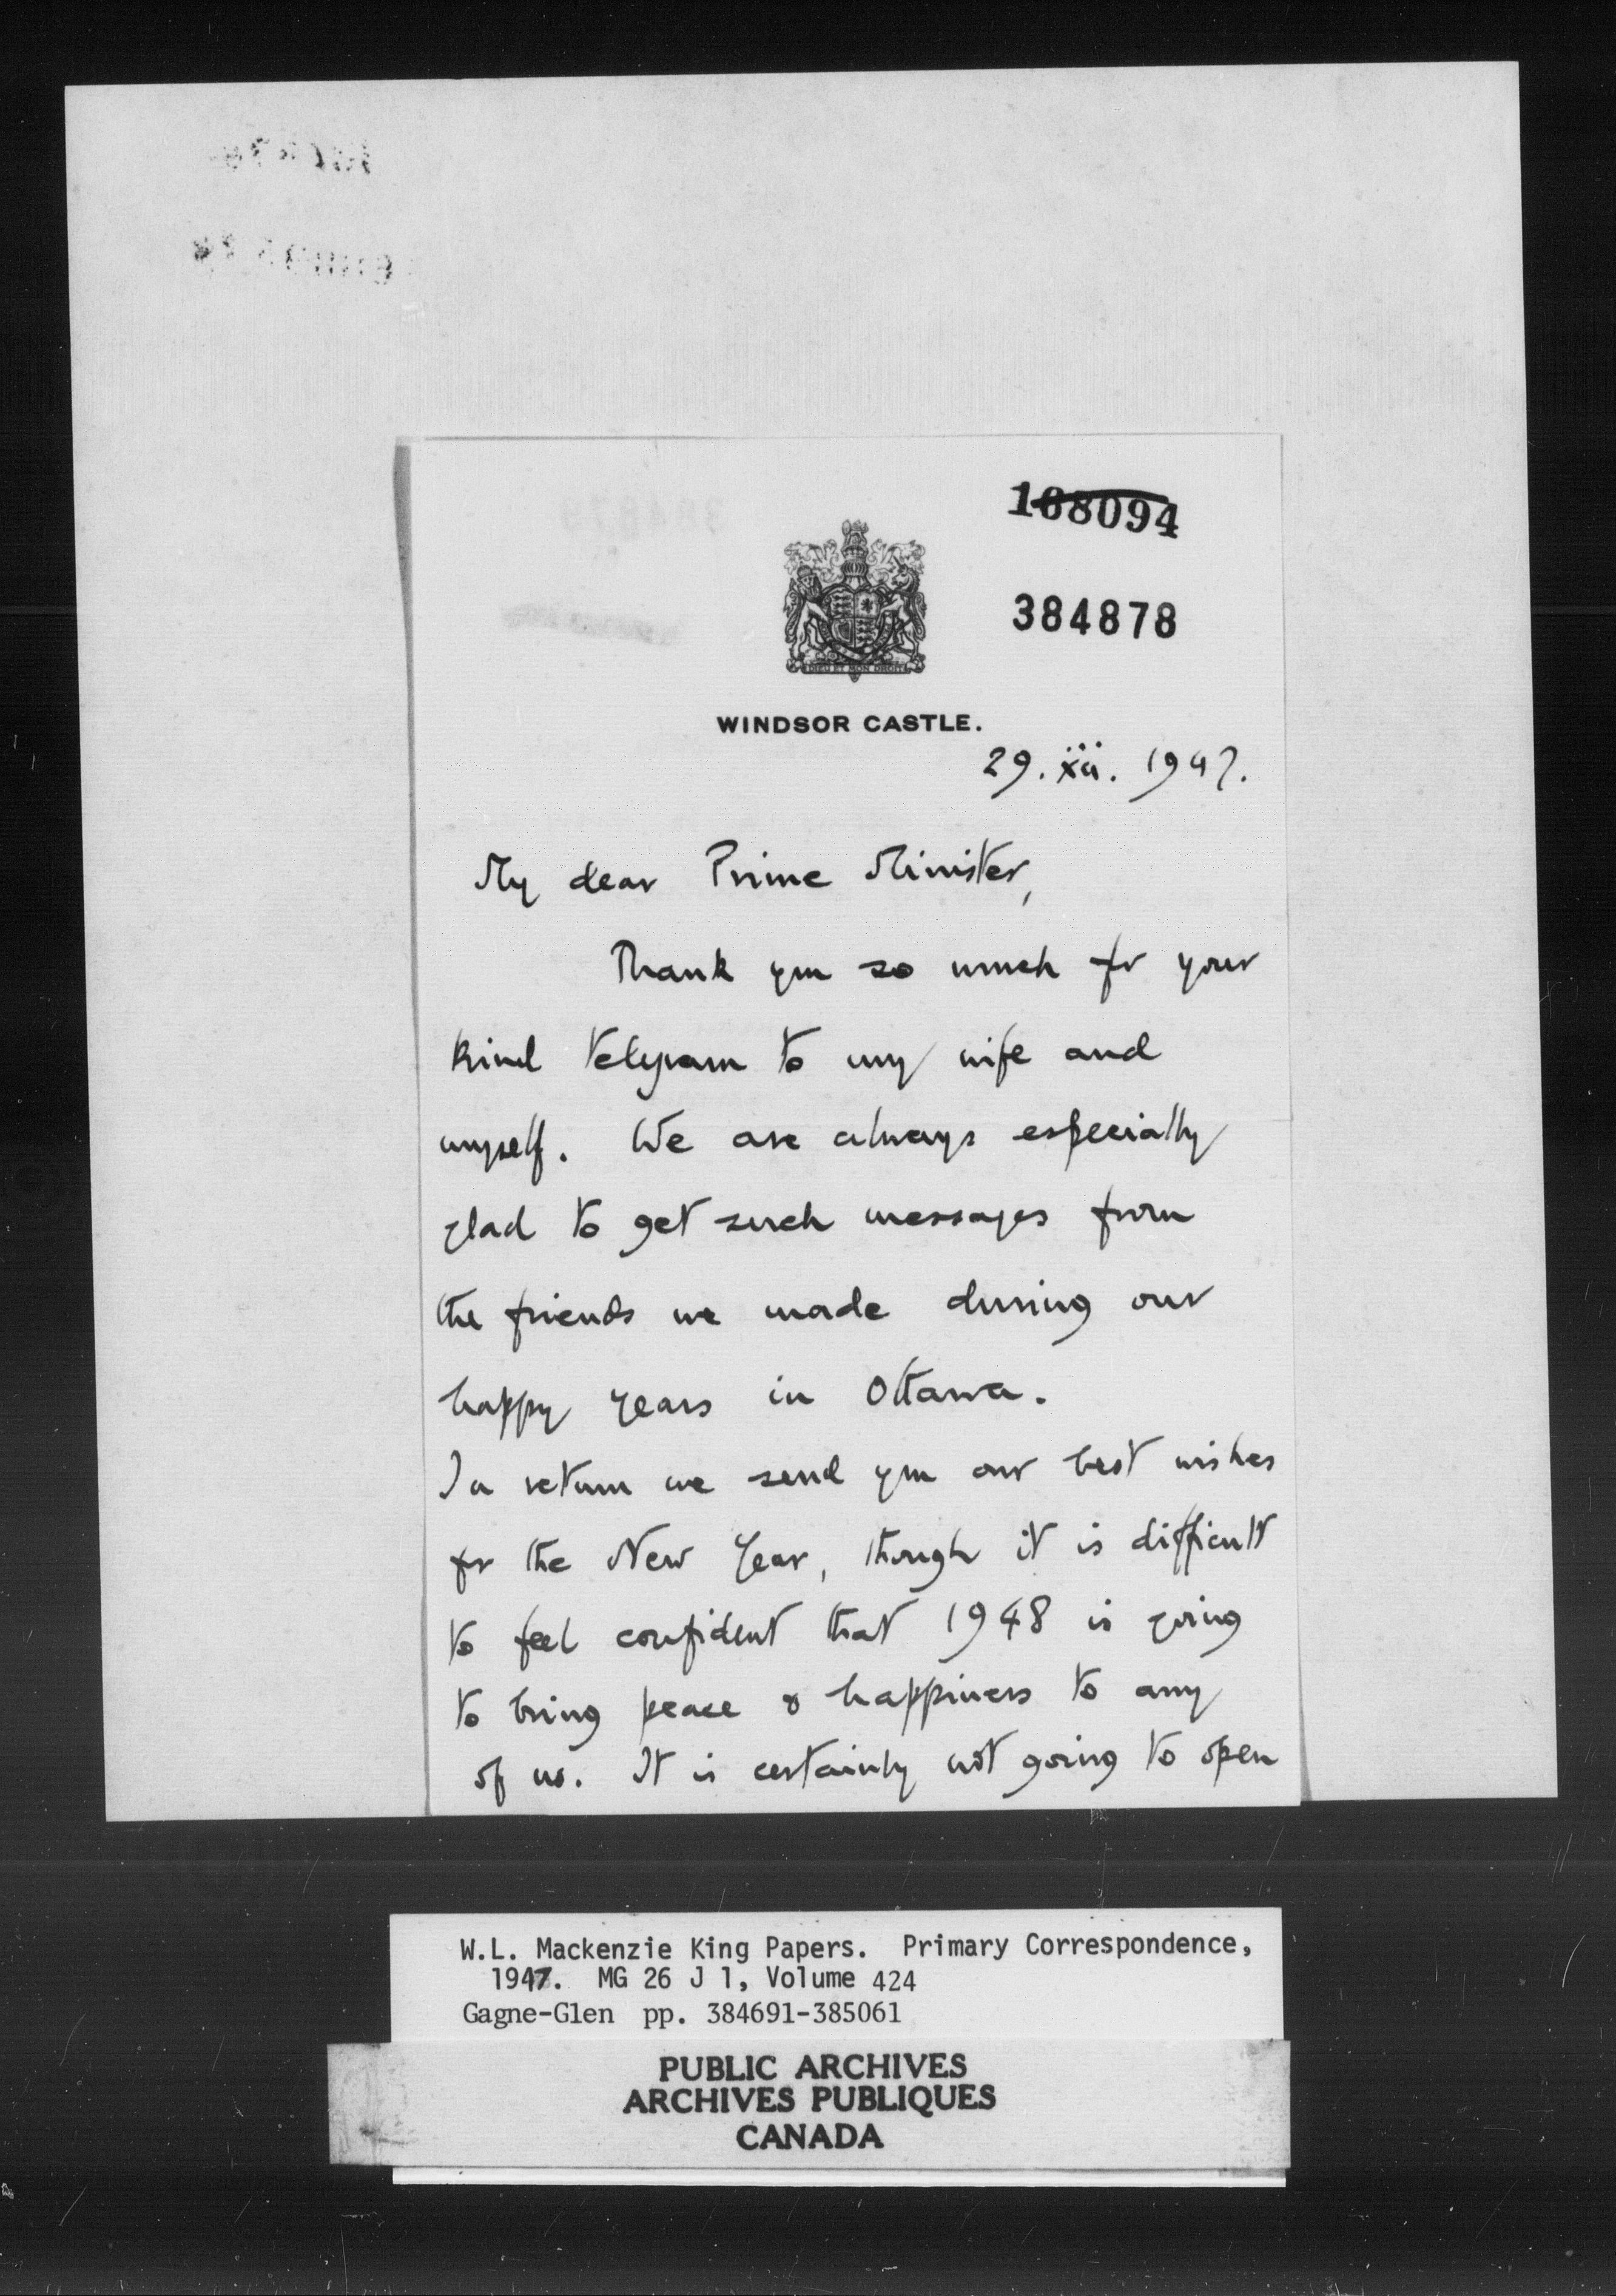 168094
384878
DIEU ET MON DROIT
WINDSOR CASTLE.
29. xii. 1947.
My dear Prime Minister,
Thank you so much for your
kind telegram to my wife and
myself. We are always especially
glad to get such messages from
the friends we made during our
happy years in Ottawa.
In return we send you our best wishes
for the New Year, though it is difficult
to feel confident that 1948 is going
to bring peace & happiness to any
of us. It is certainly not going to open
W.L. Mackenzie King Papers. Primary Correspondence,
1947. MG 26 J 1, Volume 424
Gagne-Glen pp. 384691-385061
PUBLIC ARCHIVES
ARCHIVES PUBLIQUES
CANADA